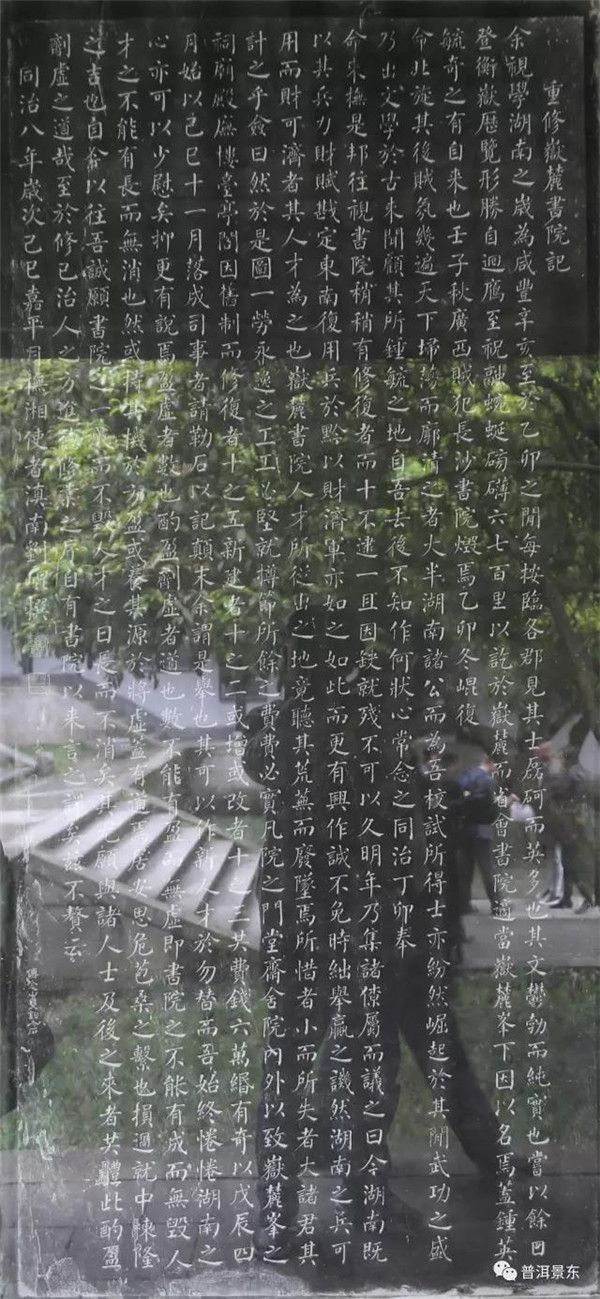 重修嶽麓書院記
余視學湖南之歲為咸豐辛亥至於乙卯之閒每按臨各郡見其士磊砢而英多也其文鬱勃而純實也嘗以餘日
登衡嶽歷覽形勝自迴鴈至祝融蜿蜒磅礴六七百里以訖於嶽麓而省會書院適當嶽麓峯下因以名焉蓋鍾英
毓奇之有自来也壬子秋廣西賊犯長沙書院燬焉乙卯冬崐復
命北旋其後賊氛幾遍天下埽蕩而廓清之者大半湖南諸公而為吾校試所得士亦紛然崛起於其閒武功之盛
乃出文學於古未聞顧其所鍾毓之地自吾去後不知作何狀心常念之同治丁卯奉
命來撫是邦往視書院稍稍有修復者而十不逮一且因缺就殘不可以久明年乃集諸僚屬而議之曰今湖南既
以其兵力財賦戡定東南復用兵於黔以財濟軍亦如之如此而更有興作誠不免時絀舉贏之譏然湖南之兵可
用而財可濟者其人才為之也嶽麓書院人才所從出之地竟聽其荒蕪而廢墜焉所惜者小而所失者大諸君其
計之乎僉曰然於是圖一勞永逸之工工必堅就撙節所餘之費費必實凡院之門堂齋舍院內外以致嶽麓峯之
祠廟殿廡慺臺亭閣因舊制而修復者十之五新建者十之二或增或改者十之三共費錢六萬緡有奇以戊辰四
月始以己巳十一月落成司事者請勒石以記顛末余謂是舉也其可以作新人才於勿替而吾始終惓惓湖南之
心亦可以少慰矣抑更有說焉盈虛者數也酌盈劑虛者道也數不能有盈而無虛即書院之不能有成而無毀人
才之不能有長而無消也然或持其機於方盈或養其源於將虛蓋有道焉居安思危苞桑之繫也損過就中棟隆
之吉也自茲以往吾誠願書院之一成而不毀人才之日長而不消矣其尤願與諸人士及後之來者共體此酌盈
劑虛之道哉至於修己治人之方進德修業之序自有書院以來言之詳矣茲不贅云
同治八年歲次己巳嘉平月撫湘使者滇南劉崐撰
普洱景东